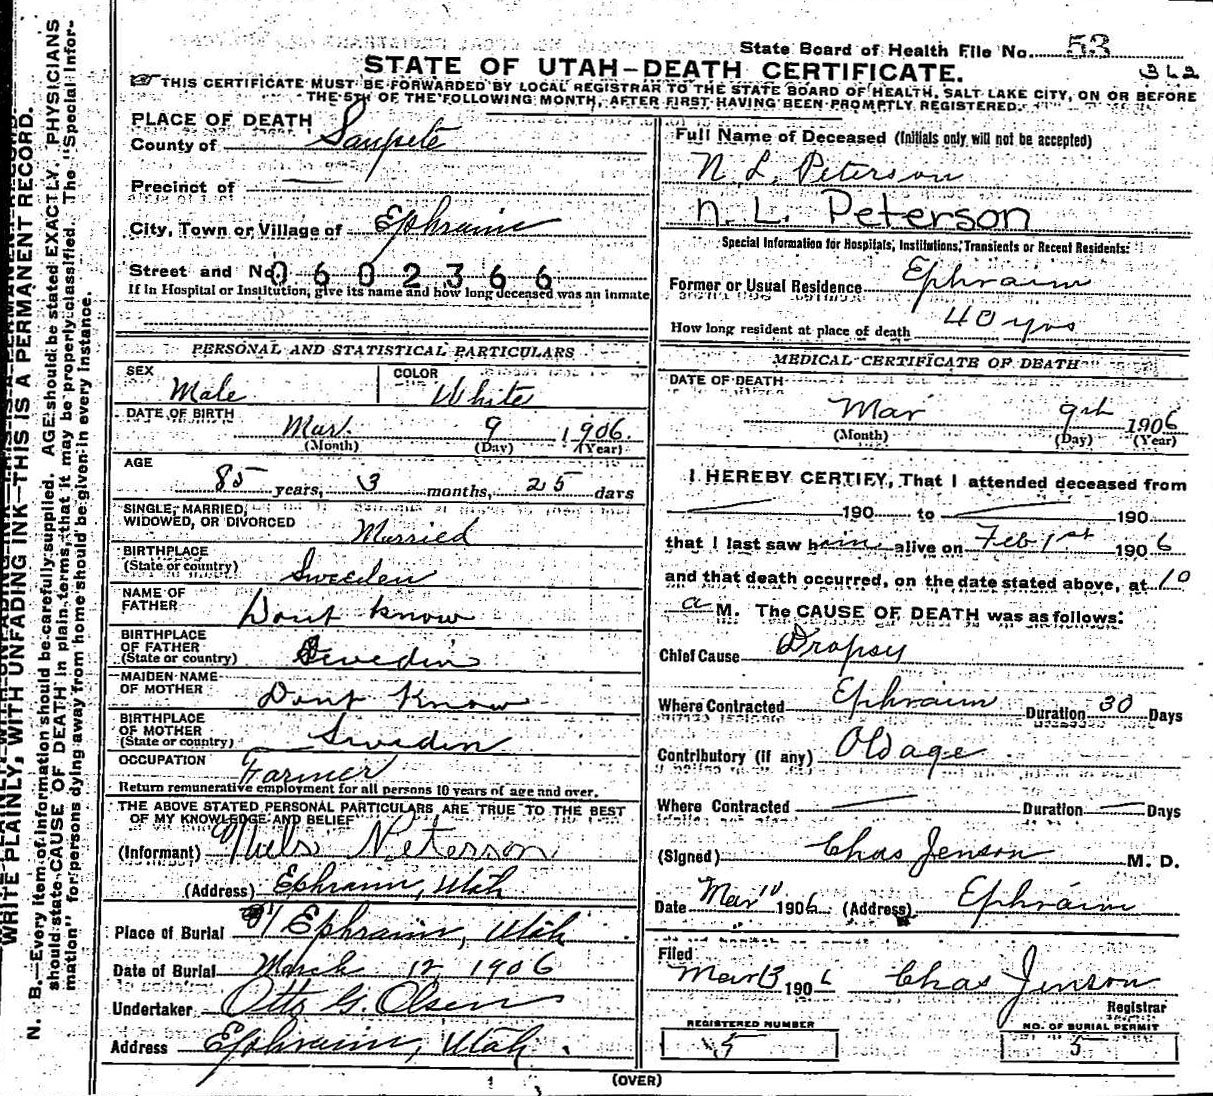 State Board of Health File No. 53
STATE OF UTAH—DEATH CERTIFICATE.
362
THIS CERTIFICATE MUST BE FORWARDED BY LOCAL REGISTRAR TO THE STATE BOARD OF HEALTH, SALT LAKE CITY, ON OR BEFORE
THE 5TH OF THE FOLLOWING MONTH, AFTER FIRST HAVING BEEN PROMPTLY REGISTERED.
WRITE PLAINLY, WITH UNFADING INK—THIS IS A PERMANENT RECORD.
N. B.—Every item of information should be carefully supplied. AGE should be stated EXACTLY. PHYSICIANS
should state CAUSE OF DEATH in plain terms, that it may be properly classified. The "Special Infor-
mation" for persons dying away from home should be given in every instance.
PLACE OF DEATH
County of Sanpete
Precinct of —
City, Town or Village of Ephraim
Street and No. 0602366
If in Hospital or Institution, give its name and how long deceased was an inmate
PERSONAL AND STATISTICAL PARTICULARS
SEX Male COLOR White
DATE OF BIRTH Mar. 9 1906
(Month) (Day) (Year)
AGE
85 years, 3 months, 25 days
SINGLE, MARRIED,
WIDOWED, OR DIVORCED Married
BIRTHPLACE
(State or country) Sweeden
NAME OF
FATHER Dont know
BIRTHPLACE
OF FATHER
(State or country) Swedin
MAIDEN NAME
OF MOTHER Dont Know
BIRTHPLACE
OF MOTHER
(State or country) Swedin
OCCUPATION Farmer
Return remunerative employment for all persons 10 years of age and over.
THE ABOVE STATED PERSONAL PARTICULARS ARE TRUE TO THE BEST
OF MY KNOWLEDGE AND BELIEF
(Informant) Niels Peterson
(Address) Ephraim, Utah
Place of Burial Ephraim, Utah
Date of Burial March 12 1906
Undertaker Otto G. Olsen
Address Ephraim, Utah.
Full Name of Deceased (Initials only will not be accepted)
N. L. Peterson
n. L. Peterson
Special Information for Hospitals, Institutions, Transients or Recent Residents:
Former or Usual Residence Ephraim
How long resident at place of death 40 yrs
MEDICAL CERTIFICATE OF DEATH
DATE OF DEATH
Mar 9th 1906
(Month) (Day) (Year)
I HEREBY CERTIFY, That I attended deceased from
— 190 to — 190
that I last saw him alive on Feb 1st 1906
and that death occurred, on the date stated above, at 10
a M. The CAUSE OF DEATH was as follows:
Chief Cause Dropsy
Where Contracted Ephraim Duration 30 Days
Contributory (if any) Old age
Where Contracted — Duration — Days
(Signed) Chas Jenson M. D.
Date Mar 10 1906 (Address) Ephraim
Filed
Mar 13 1906 Chas Jenson
Registrar
REGISTERED NUMBER
5
NO. OF BURIAL PERMIT
5
(OVER)